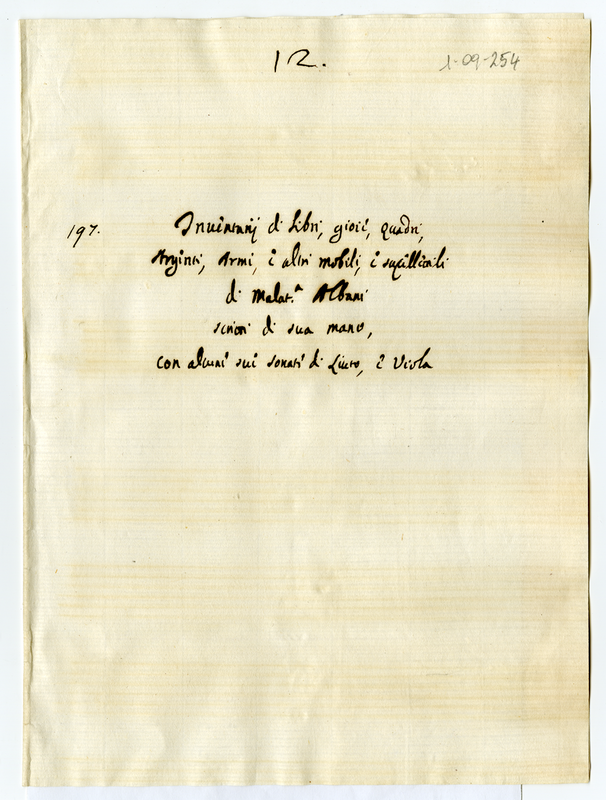 12.
1-09-254
197.
Inventarij di Libri, gioie, quadri,
Argenti, Armi, e altri mobili, e supellettili
di Malat.ª Albani
scritti di sua mano,
con alcune sue sonate di Liuto, e Viola